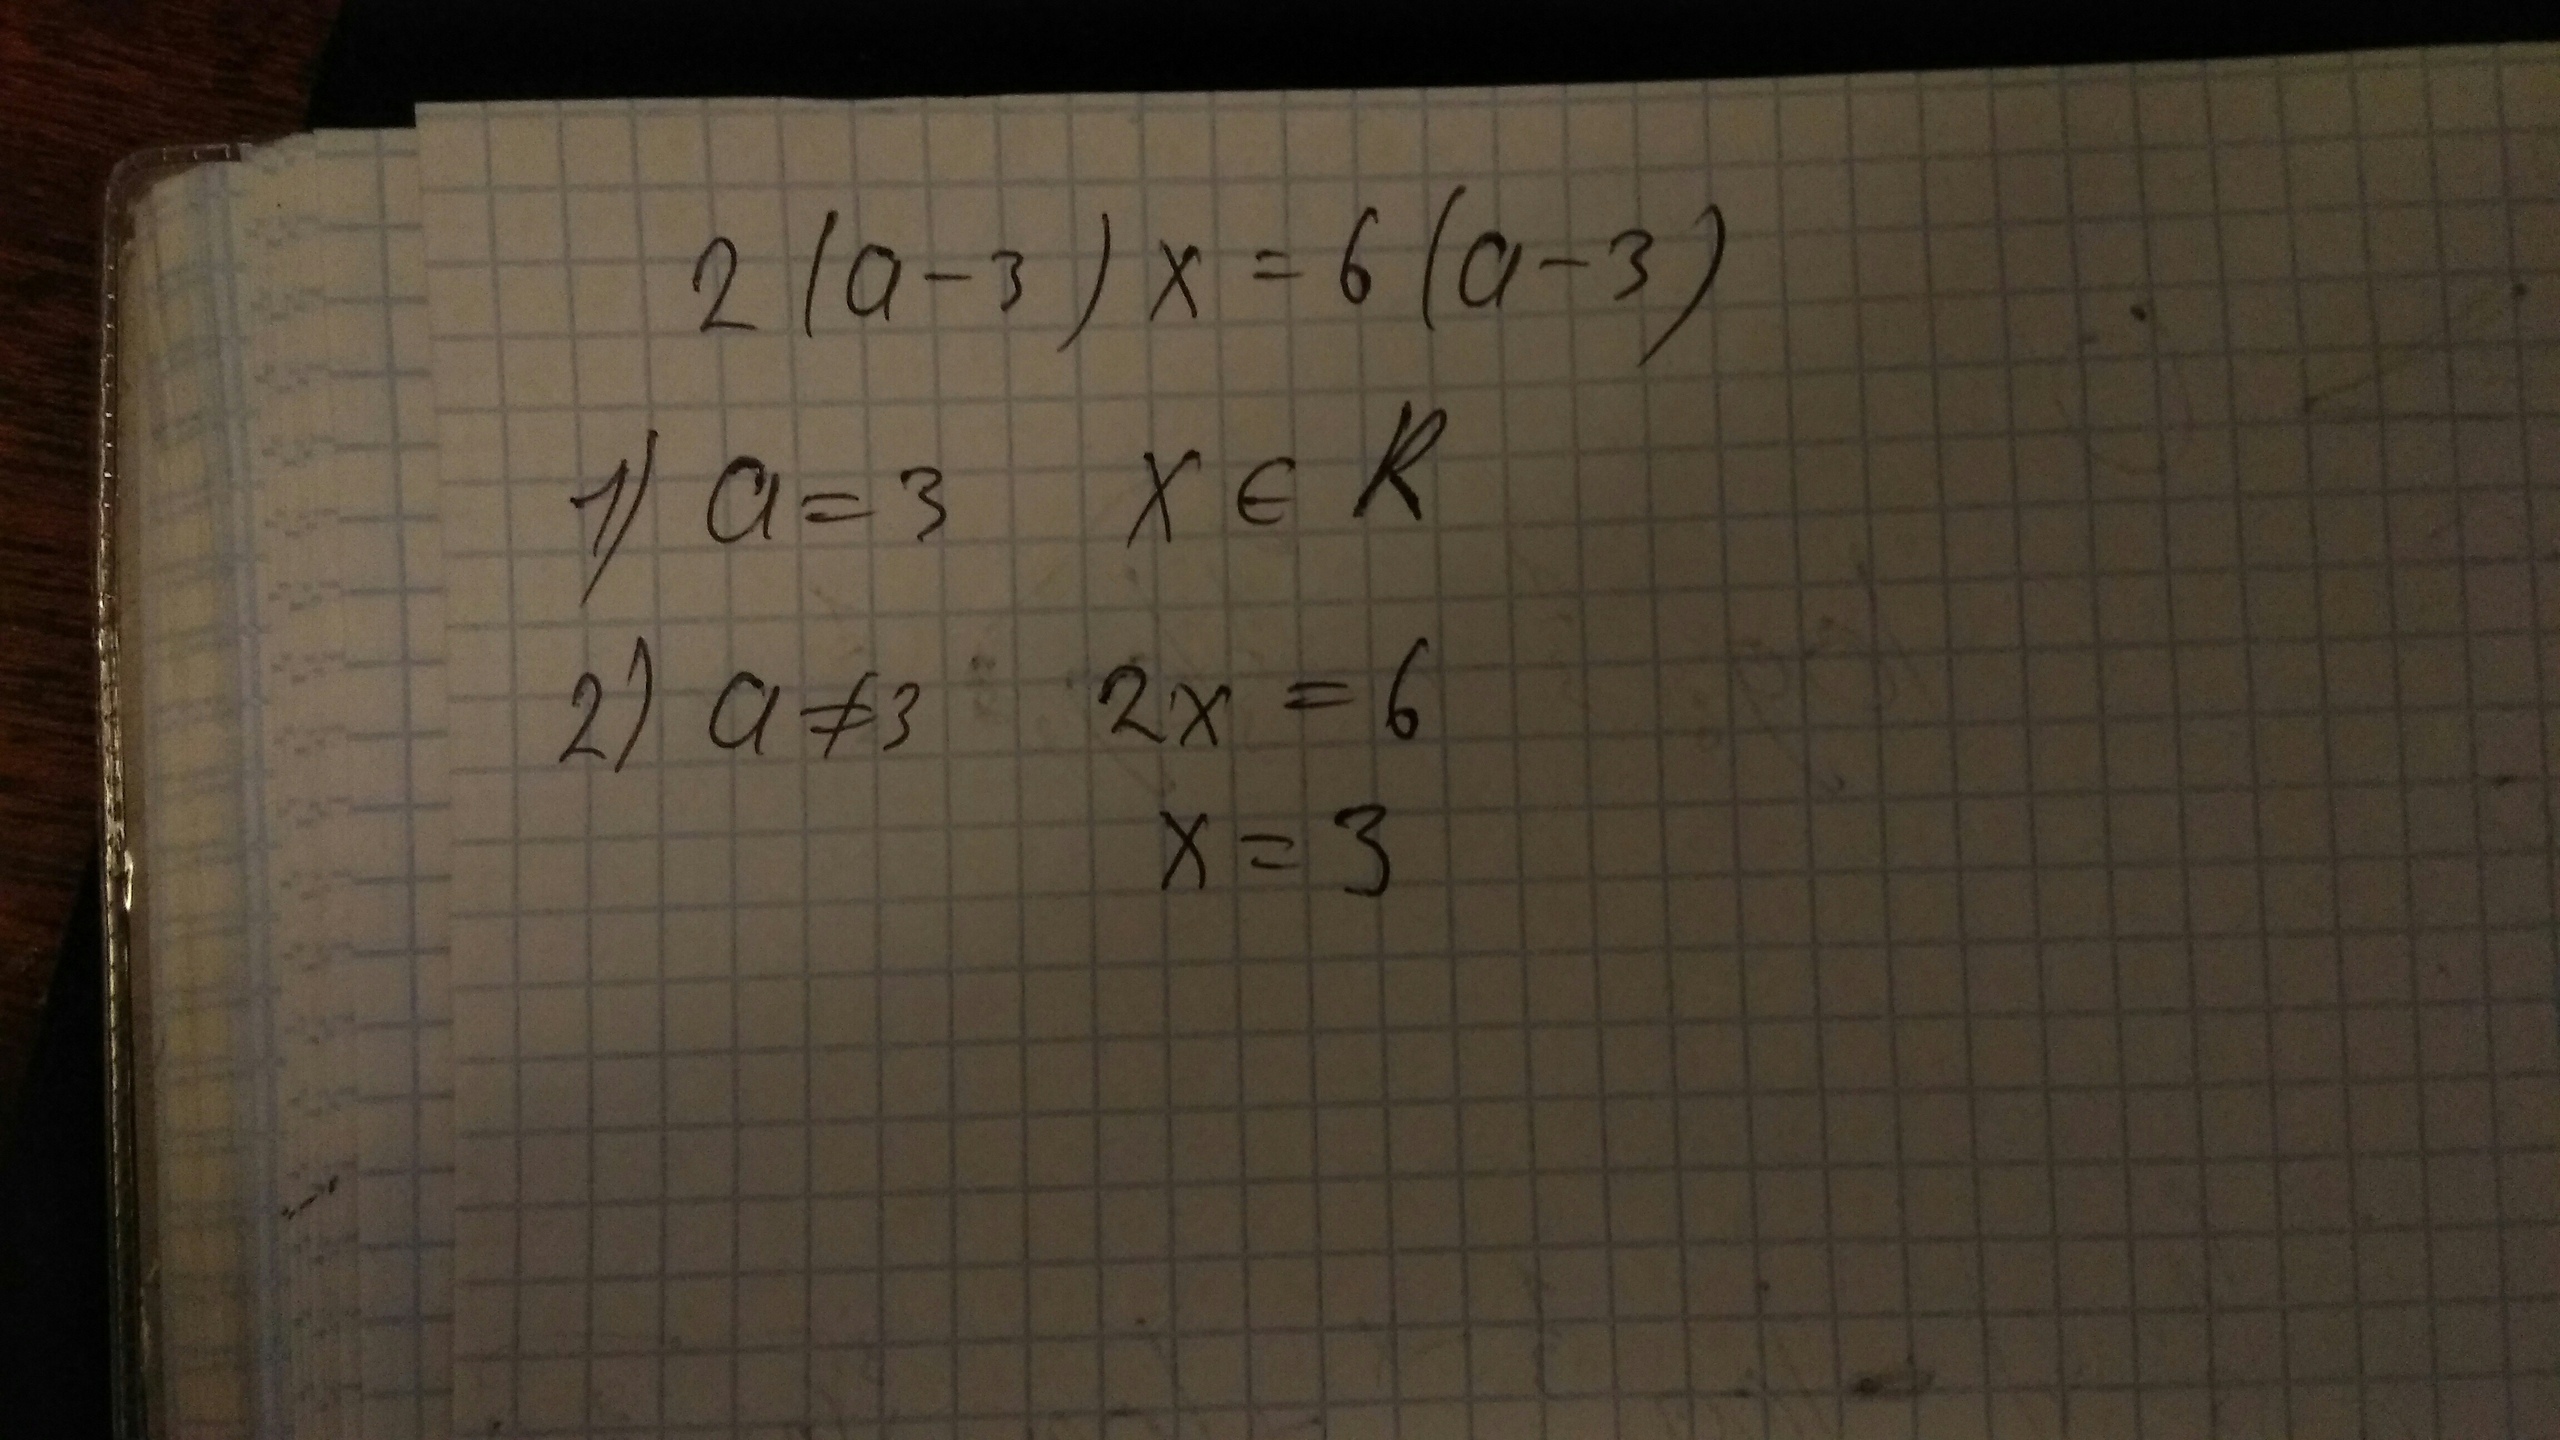 2(a-3)x=6(a-3)
1) a=3 x∈R
2) a≠3 2x=6
x=3